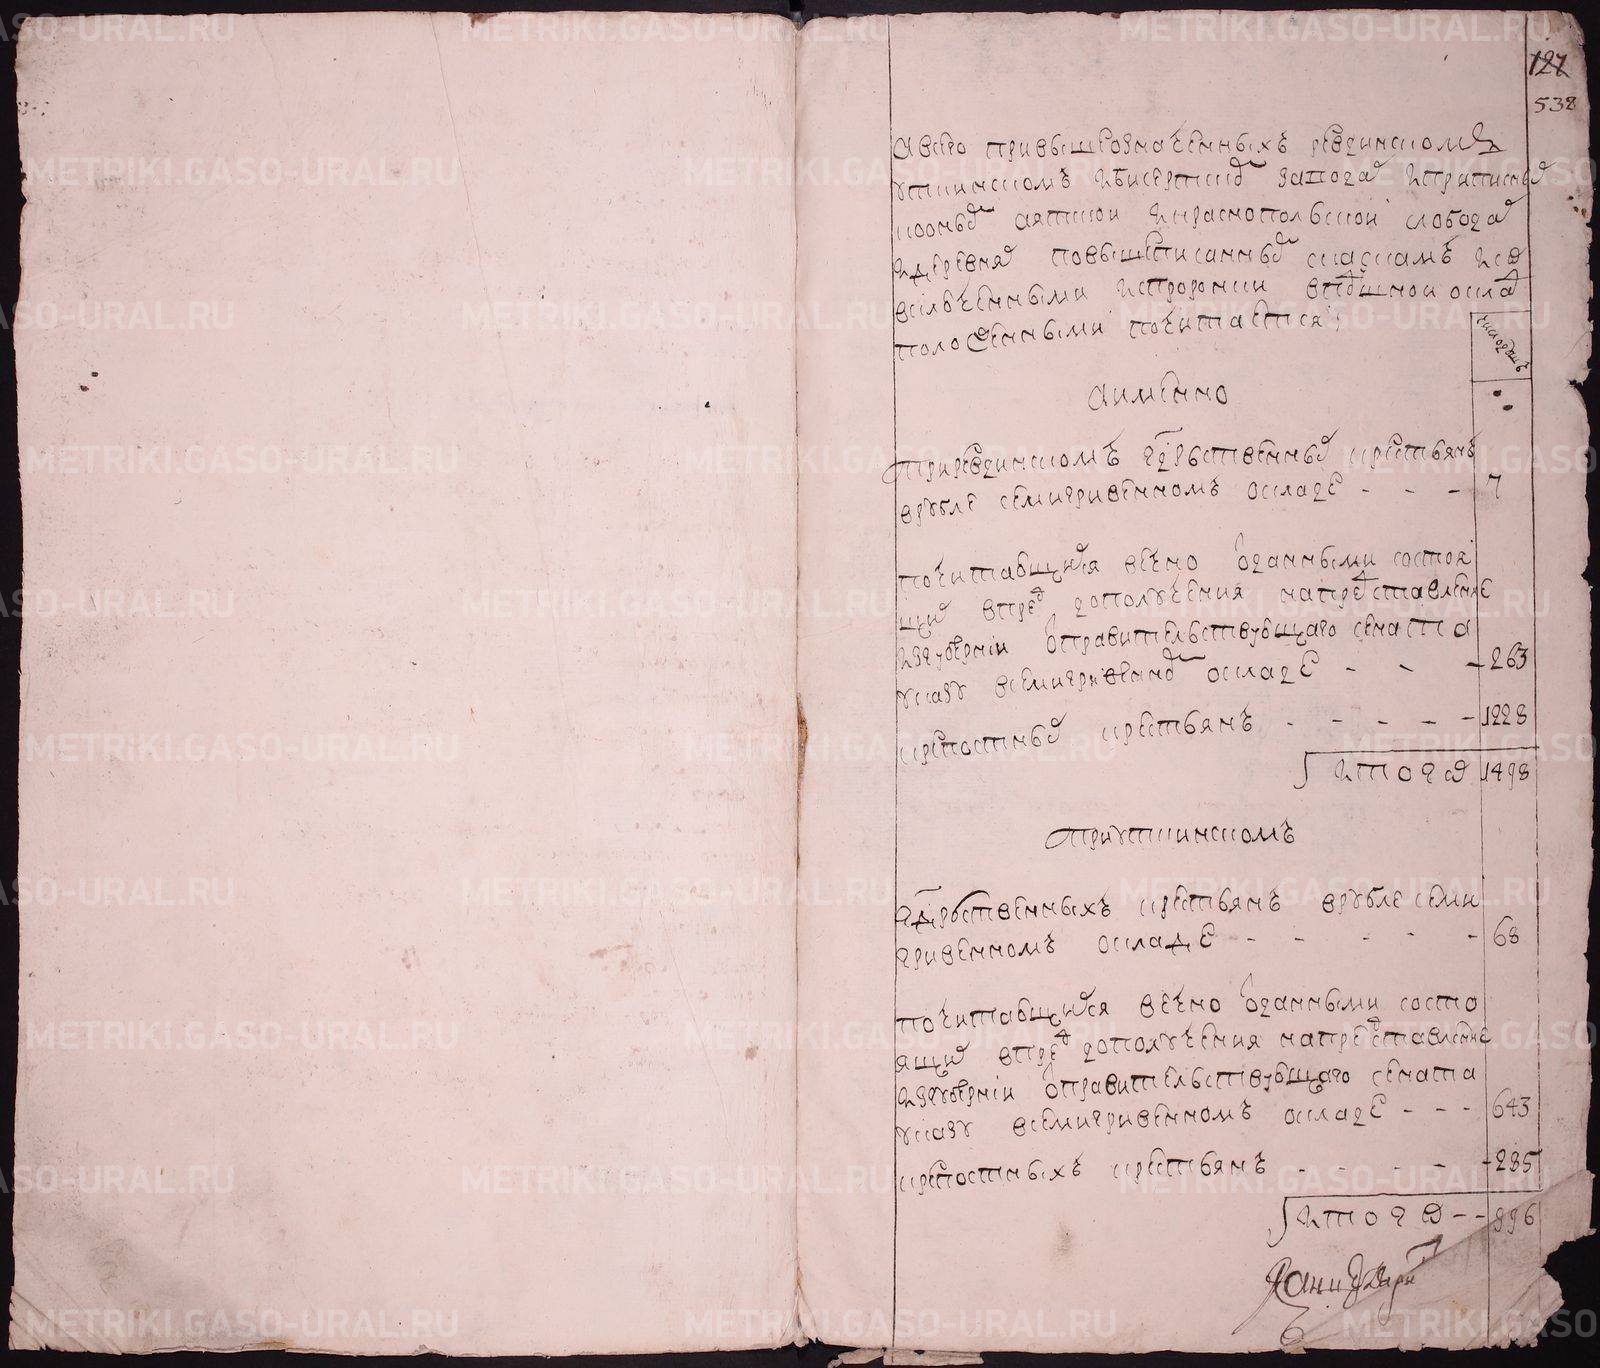 127
538
А всего при вышеозначенных ревдинском
уткинском и бисертских заводах и приписных
к оным аятской и краснопольской слобода
и деревнях по вышеписанным сказкам и со
положенными почитается
число душ
А имянно
При ревдинском государственных крестьянъ
в рубле семигривенном окладе - - - 7
почитающихся вечно отданными состоя
щих впред до получения на представление
из губернии от правительствующаго сената
указу в семигривенном окладе - - - 263
крепостных крестьянъ - - - - - 1228
Итого 1498
При уткинском
государственныхъ крестьянъ в рубле семи
гривенномъ окладе - - - - - 68
почитающихся вечно отданными состо
ящих впред до получения на представление
из губернии от правительствующаго сената
указу в семигривенномъ окладе - - - 643
крепостныхъ крестьянъ - - - - - 285
Итого - - 996
METRIKI.GASO-URAL.RU